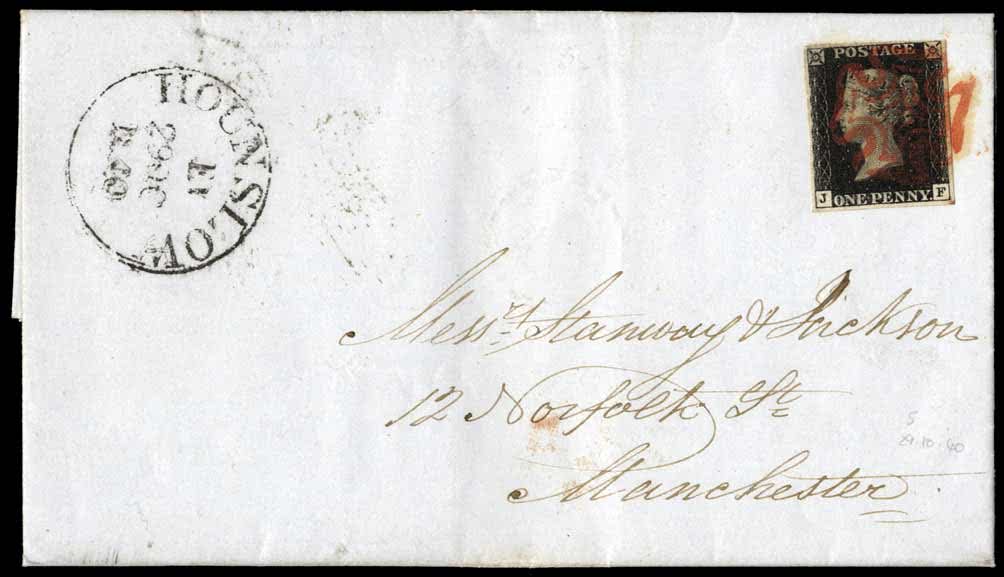 HOUNSLOW
29 OC
1840
POSTAGE
J ONE PENNY. F
Messrs. Stanway & Jackson
12 Norfolk St
Manchester
5
29.10.40